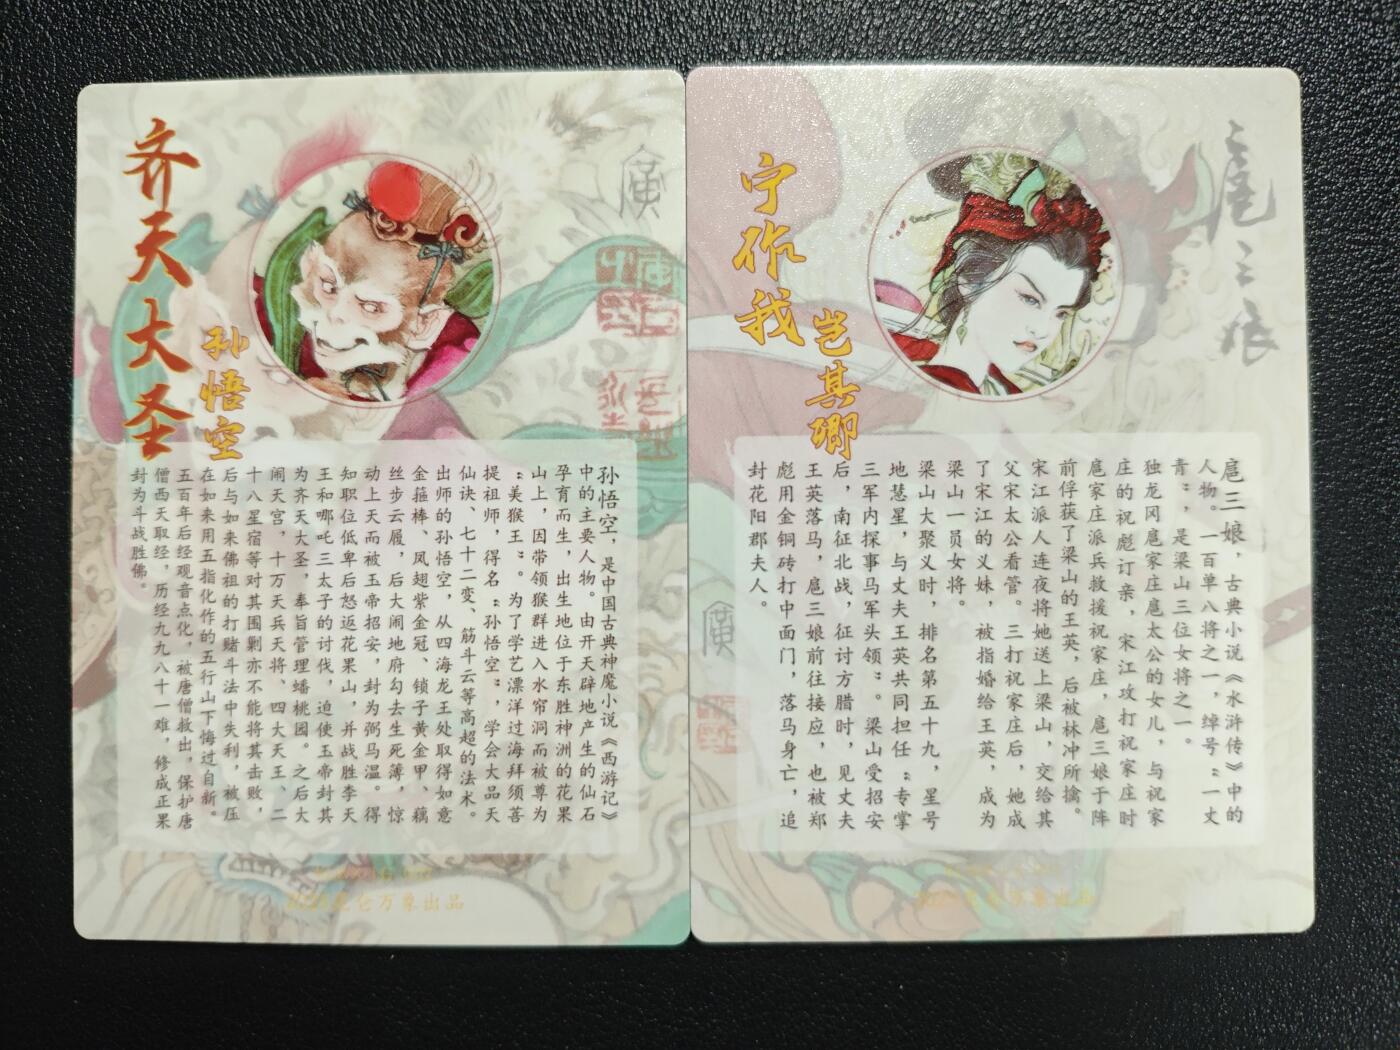 齐天大圣
孙悟空
廣
孙悟空，是中国古典神魔小说《西游记》
中的主要人物。由开天辟地产生的仙石
孕育而生，出生地位于东胜神洲的花果
山上，因带领猴群进入水帘洞而被尊为
“美猴王”。为了学艺漂洋过海拜须菩
提祖师，得名“孙悟空”，学会大品天
仙诀、七十二变、筋斗云等高超的法术。
出师的孙悟空，从四海龙王处取得如意
金箍棒、凤翅紫金冠、锁子黄金甲、藕
丝步云履，后大闹地府勾去生死簿，惊
动上天而被玉帝招安，封为弼马温。得
知职位低卑后怒返花果山，并战胜李天
王和哪吒三太子的讨伐，迫使玉帝封其
为齐天大圣，奉旨管理蟠桃园。之后大
闹天宫，十万天兵天将、四大天王、二
十八星宿等对其围剿亦不能将其击败，
后与如来佛祖的打赌斗法中失利，被压
在如来用五指化作的五行山下悔过自新。
五百年后经观音点化，被唐僧救出，保护唐
僧西天取经，历经九九八十一难，修成正果
封为斗战胜佛。
昆仑万象出品
宁作我
岂其卿
扈三娘
扈三娘，古典小说《水浒传》中的
人物。一百单八将之一，绰号“一丈
青”，是梁山三位女将之一。
独龙冈扈家庄扈太公的女儿，与祝家
庄的祝彪订亲，宋江攻打祝家庄时
扈家庄派兵救援祝家庄，扈三娘于阵
前俘获了梁山的王英，后被林冲所擒。
宋江派人连夜将她送上梁山，交给其
父宋太公看管。三打祝家庄后，她成
了宋江的义妹，被指婚给王英，成为
梁山一员女将。
梁山大聚义时，排名第五十九，星号
地慧星，与丈夫王英共同担任“专掌
三军内探事马军头领”。梁山受招安
后，南征北战，征讨方腊时，见丈夫
王英落马，扈三娘前往接应，也被郑
彪用金铜砖打中面门，落马身亡，追
封花阳郡夫人。
廣
昆仑万象出品